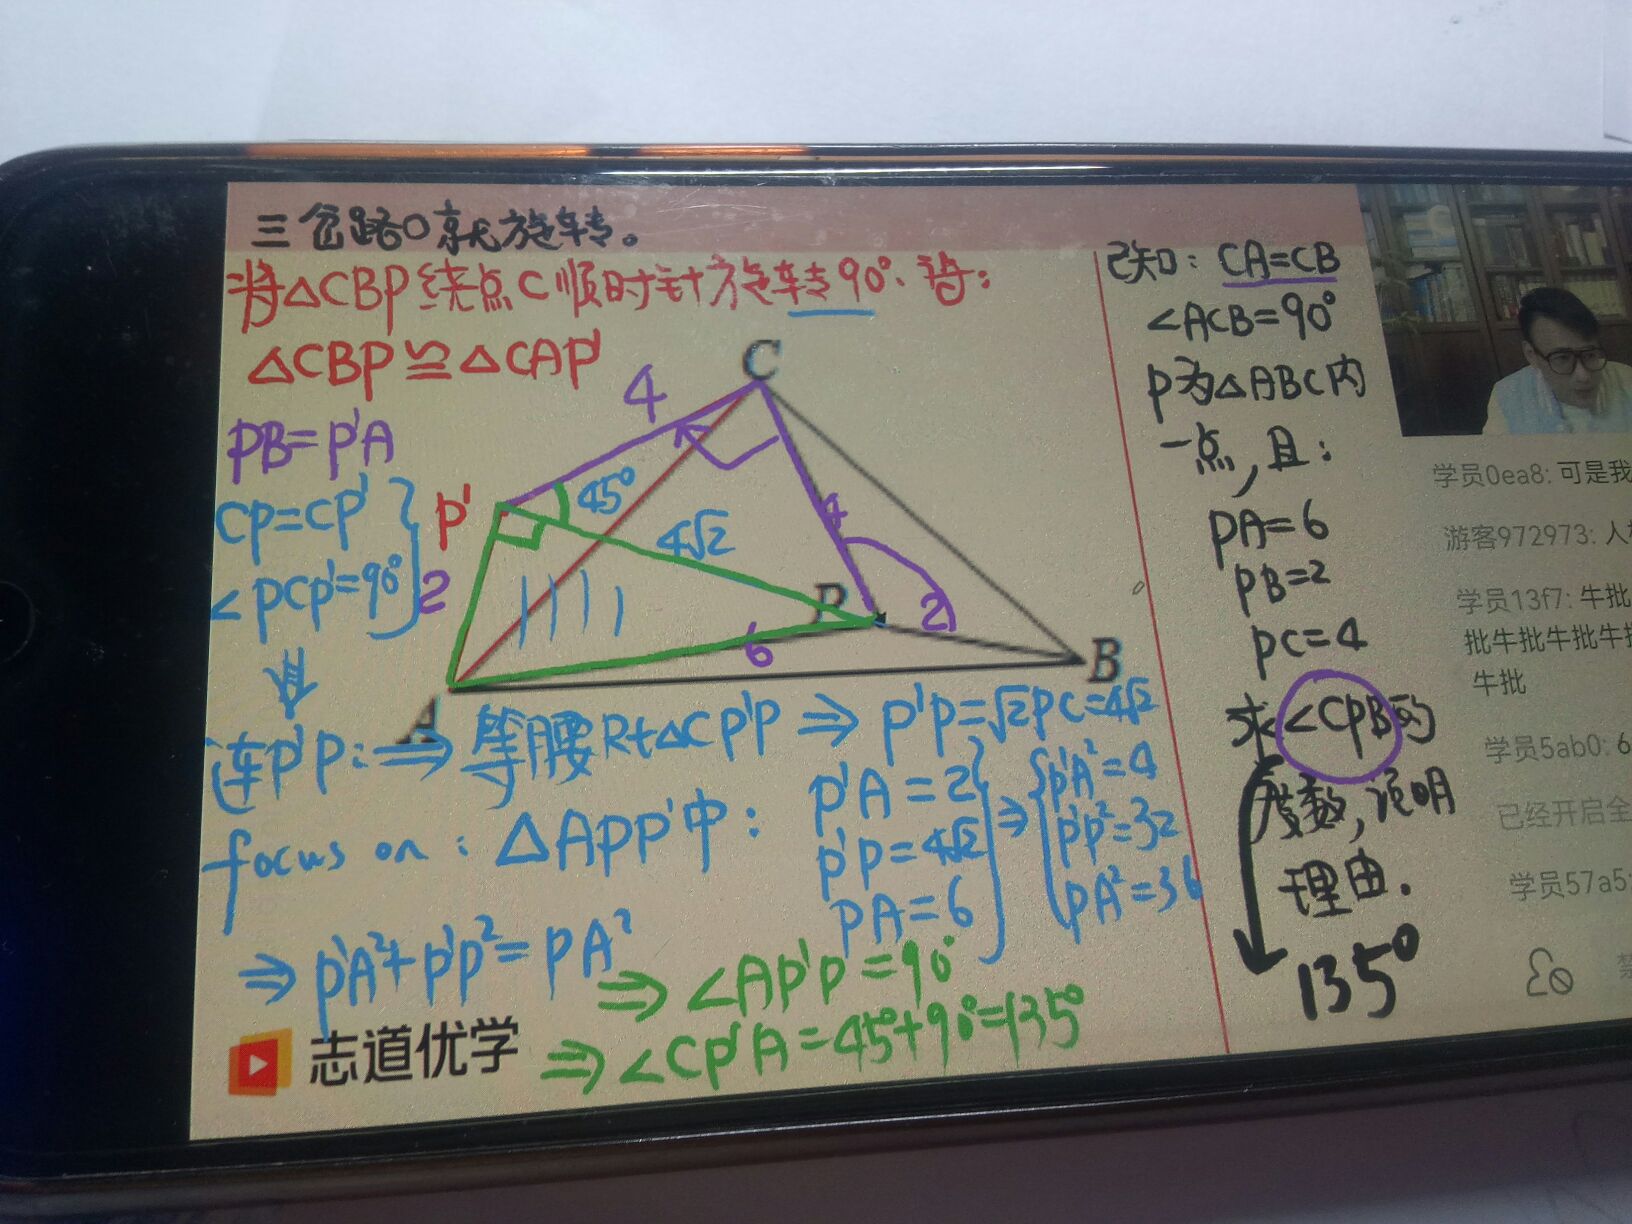 三岔路口就旋转。
将△CBP绕点C顺时针旋转90°.得:
△CBP≌△CAP'
PB=P'A
CP=CP'
∠PCP'=90°
C
4
45°
P'
4√2
4
2
P
2
6
B
A
连P'P:⇒等腰Rt△CP'P⇒P'P=√2PC=4√2
focus on:△APP'中:
P'A=2
P'P=4√2
PA=6
⇒
P'A²=4
P'P²=32
PA²=36
⇒P'A²+P'P²=PA²
⇒∠AP'P=90°
⇒∠CP'A=45°+90°=135°
志道优学
已知:CA=CB
∠ACB=90°
P为△ABC内
一点,且:
PA=6
PB=2
PC=4
求∠CPB的
度数,说明
理由.
135°
学员0ea8: 可是我
游客972973: 人
学员13f7: 牛批
批牛批牛批牛
牛批
学员5ab0: 6
已经开启全
学员57a5:
禁